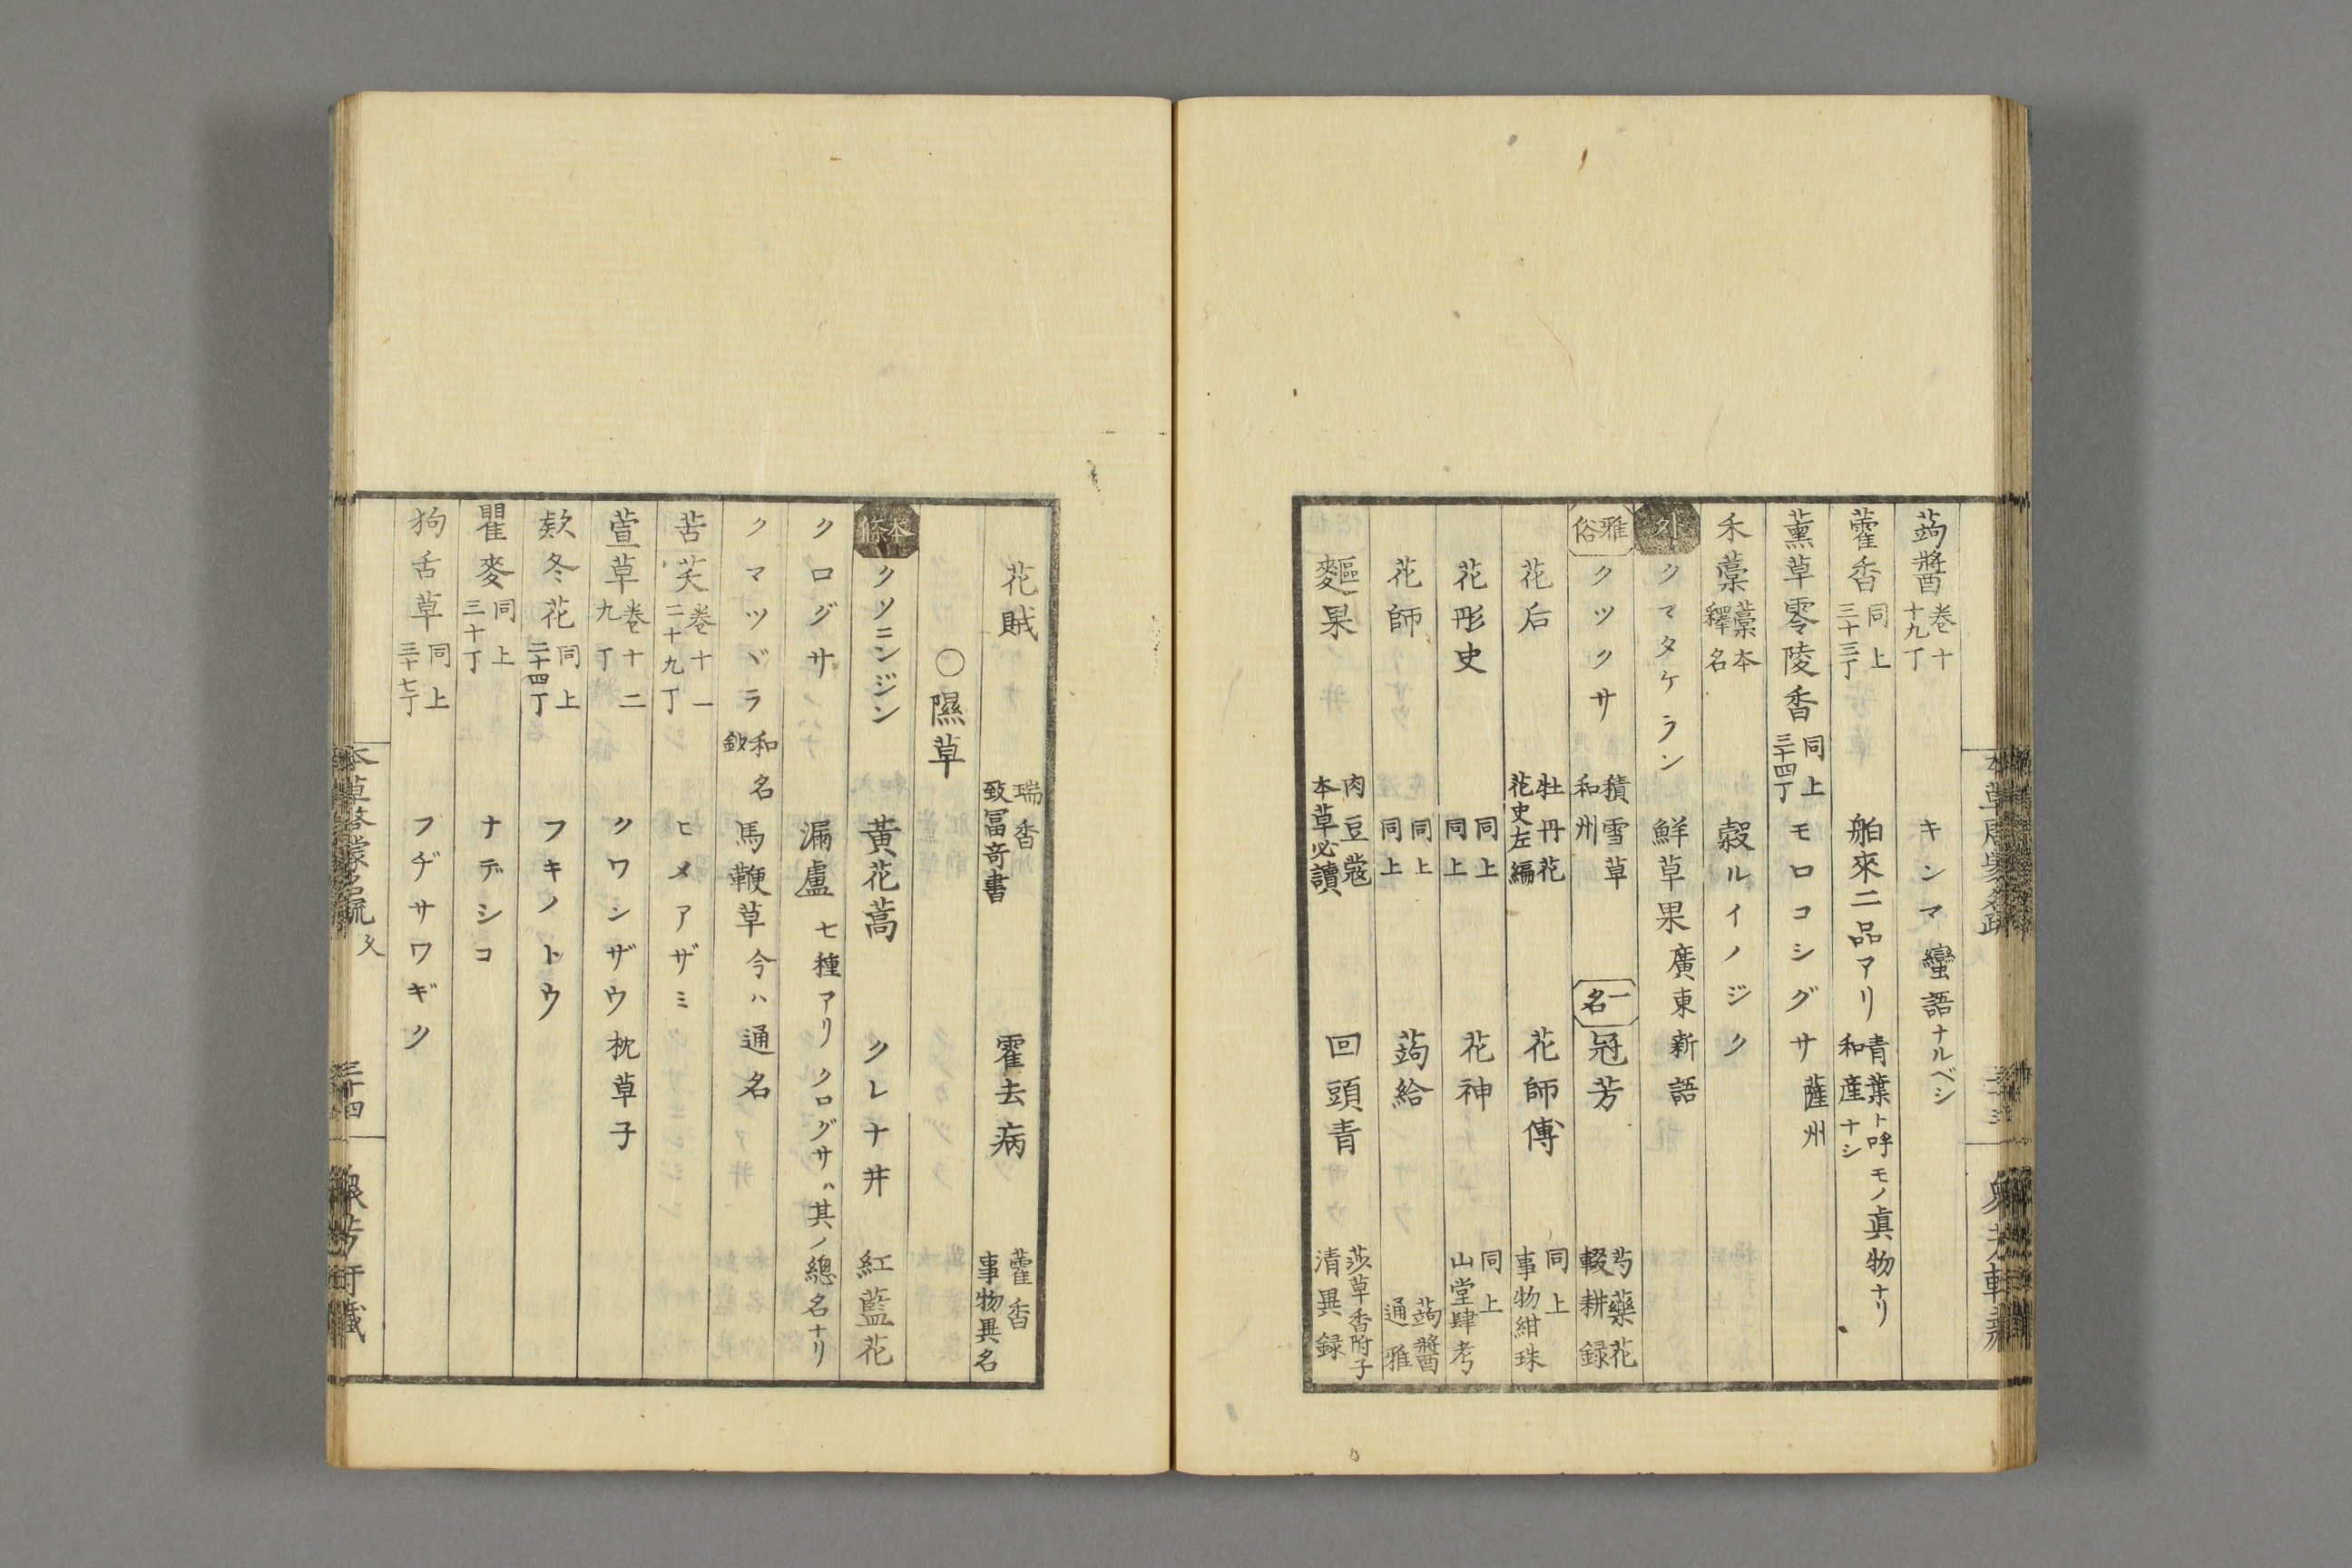 蒟醬 卷十 十九丁 キンマ 蠻語ナルベシ
藿香 同上 三十三丁 舶來二品アリ 青葉ト呼モノ眞物ナリ 和産ナシ
薫草零陵香 同上 三十四丁 モロコシグサ 薩州
禾藁 藁本 釋名 穀ルイノジク
外 クマタケラン 鮮草果 廣東新語
雅俗 クツクサ 積雪草 和州 一名 冠芳 芍藥花 輟耕録
花后 牡丹花 花史左編 花師傅 同上 事物紺珠
花彤史 同上 同上 花神 同上 山堂肆考
花師 同上 同上 蒟給 蒟醬 通雅
麵果 肉豆蔲 本草必讀 回頭青 莎草香附子 清異録
花賊 瑞香 致冨奇書 霍去病 藿香 事物異名
〇隰草
本條 クソニンジン 黄花蒿 クレナ井 紅藍花
クログサ 漏盧 七種アリ クログサハ其ノ總名ナリ
クマツヾラ 和名鈔 馬鞭草 今ハ通名
苦芺 卷十一 二十九丁 ヒメアザミ
萱草 卷十二 九丁 クワシザウ 枕草子
欵冬花 同上 二十四丁 フキノトウ
瞿麥 同上 三十丁 ナデシコ
狗舌草 同上 三十七丁 フヂサワギク
本草啓蒙名疏 三十四